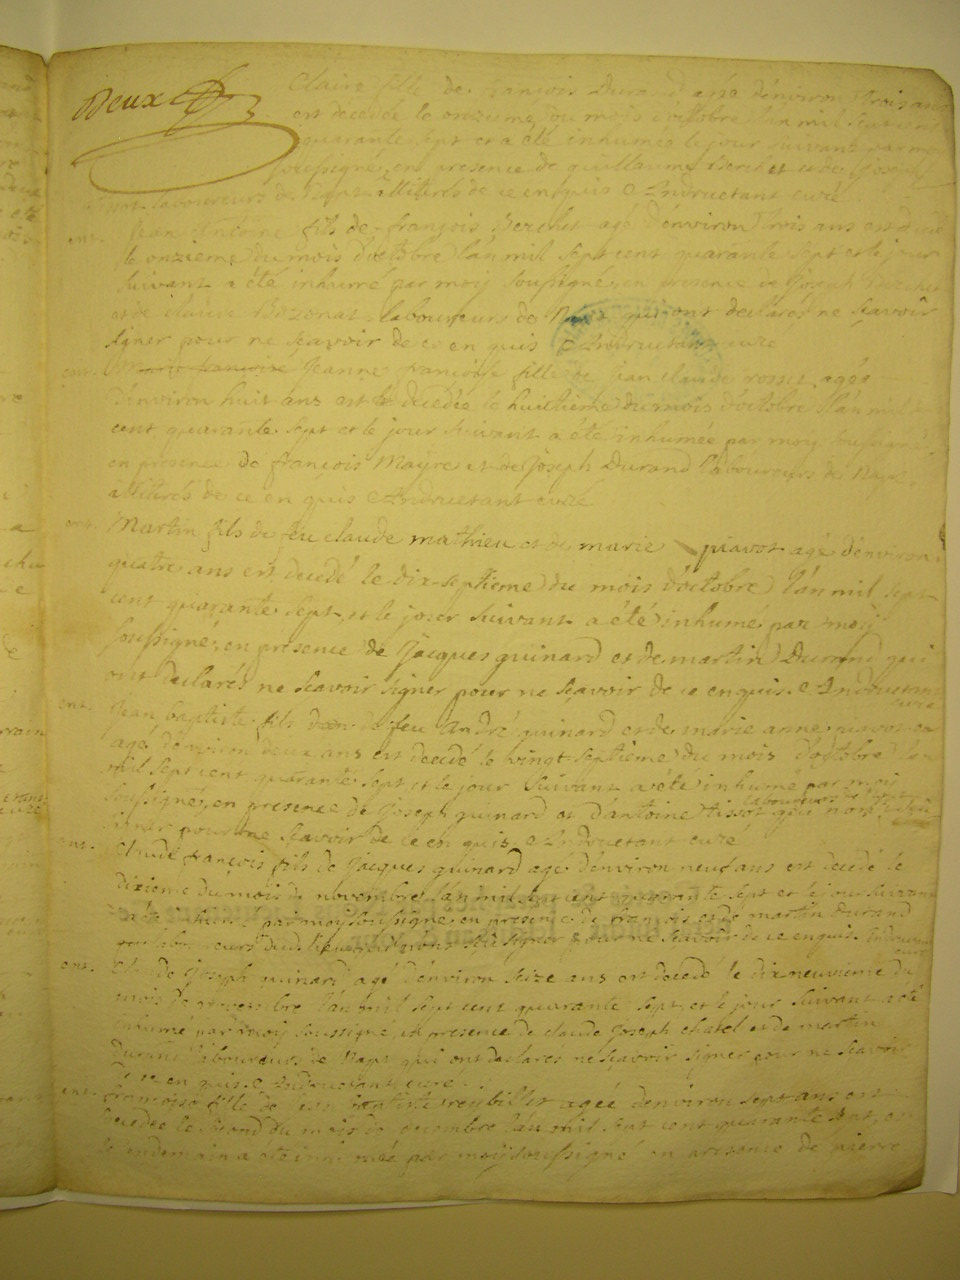 Deux
Claire fille de françois Durand agée d'environ trois ans
est decedée le onzieme du mois d'octobre l'an mil sept cent
quarante sept et a été inhumée le jour suivant par moy
soussigné, en presence de guillaume Berchet et de Joseph
laboureurs de Napt illiterés de ce enquis C Andruetant curé
ent. Jean Antoine fils de françois Berchet agé d'environ trois ans est decedé
le onzieme du mois d'octobre l'an mil sept cent quarante sept et le jour
suivant a été inhumé par moy soussigné, en presence de Joseph Berchet
et de claude laboureurs de Napt qui ont declarés ne sçavoir
signer pour ne sçavoir de ce enquis C Andruetant curé
ent. Marie françoise Jeanne françoise fille de jean claude rosset agée
d'environ huit ans est decedée le huitieme du mois d'octobre l'an mil sept
cent quarante sept et le jour suivant a été inhumée par moy soussigné
en presence de françois Mayre et de Joseph Durand laboureurs de Napt
illiterés de ce enquis C Andruetant curé
ent. Martin fils de feu claude mathieu et de marie piavot agé d'environ
quatre ans est decedé le dix septieme du mois d'octobre l'an mil sept
cent quarante sept, et le jour suivant a été inhumé par moy
soussigné, en presence de Jacques guinard et de martin Durand qui
ont declarés ne sçavoir signer pour ne sçavoir de ce enquis. C Andruetant
curé
ent. Jean baptiste fils de feu André guinard et de marie anne piavot
agé d'environ deux ans est decedé le vingt septieme du mois d'octobre l'an
mil sept cent quarante sept et le jour suivant a été inhumé par moy
soussigné, en presence de Joseph guinard et d'antoine tissot laboureurs qui n'ont
signer pour ne sçavoir de ce enquis C Andruetant curé
ent. Claude françois fils de Jacques guinard agé d'environ neuf ans est decedé le
dixieme du mois de novembre l'an mil sept cent quarante sept et le jour suivant
a été inhumé par moy soussigné, en presence de françois et de martin Durand
laboureurs dudit lieu signer pour ne sçavoir de ce enquis. Andruetant
curé
ent. de Joseph guinard agé d'environ seize ans est decedé le dix neuvieme du
mois de novembre l'an mil sept cent quarante sept, et le jour suivant a été
inhumé par moy soussigné, en presence de claude Joseph chatel et de martin
Durand laboureurs de Napt qui ont declarés ne sçavoir signer pour ne sçavoir
de ce enquis. C Andruetant curé.
ent. françoise fille de jean baptiste reybillet agée d'environ sept ans est
decedée le second du mois de decembre l'an mil sept cent quarante sept, et
le lendemain a été inhumée par moy soussigné en presence de pierre